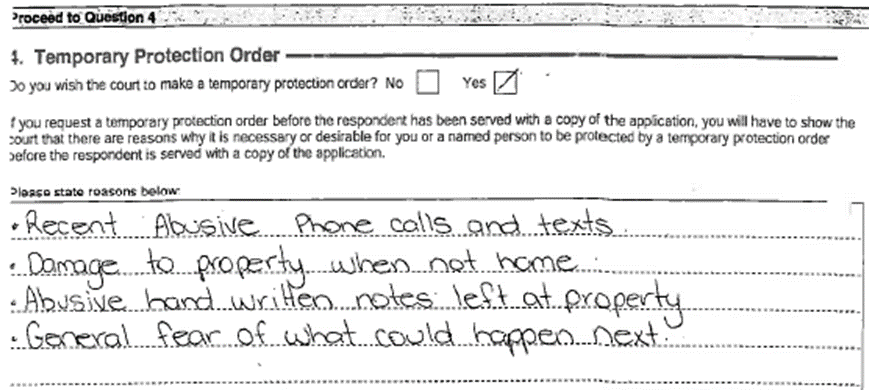 Proceed to Question 4
4. Temporary Protection Order
Do you wish the court to make a temporary protection order? No Yes
If you request a temporary protection order before the respondent has been served with a copy of the application, you will have to show the
court that there are reasons why it is necessary or desirable for you or a named person to be protected by a temporary protection order
before the respondent is served with a copy of the application.
Please state reasons below:
• Recent Abusive Phone calls and texts.
• Damage to property when not home.
• Abusive hand written notes left at property
• General fear of what could happen next.